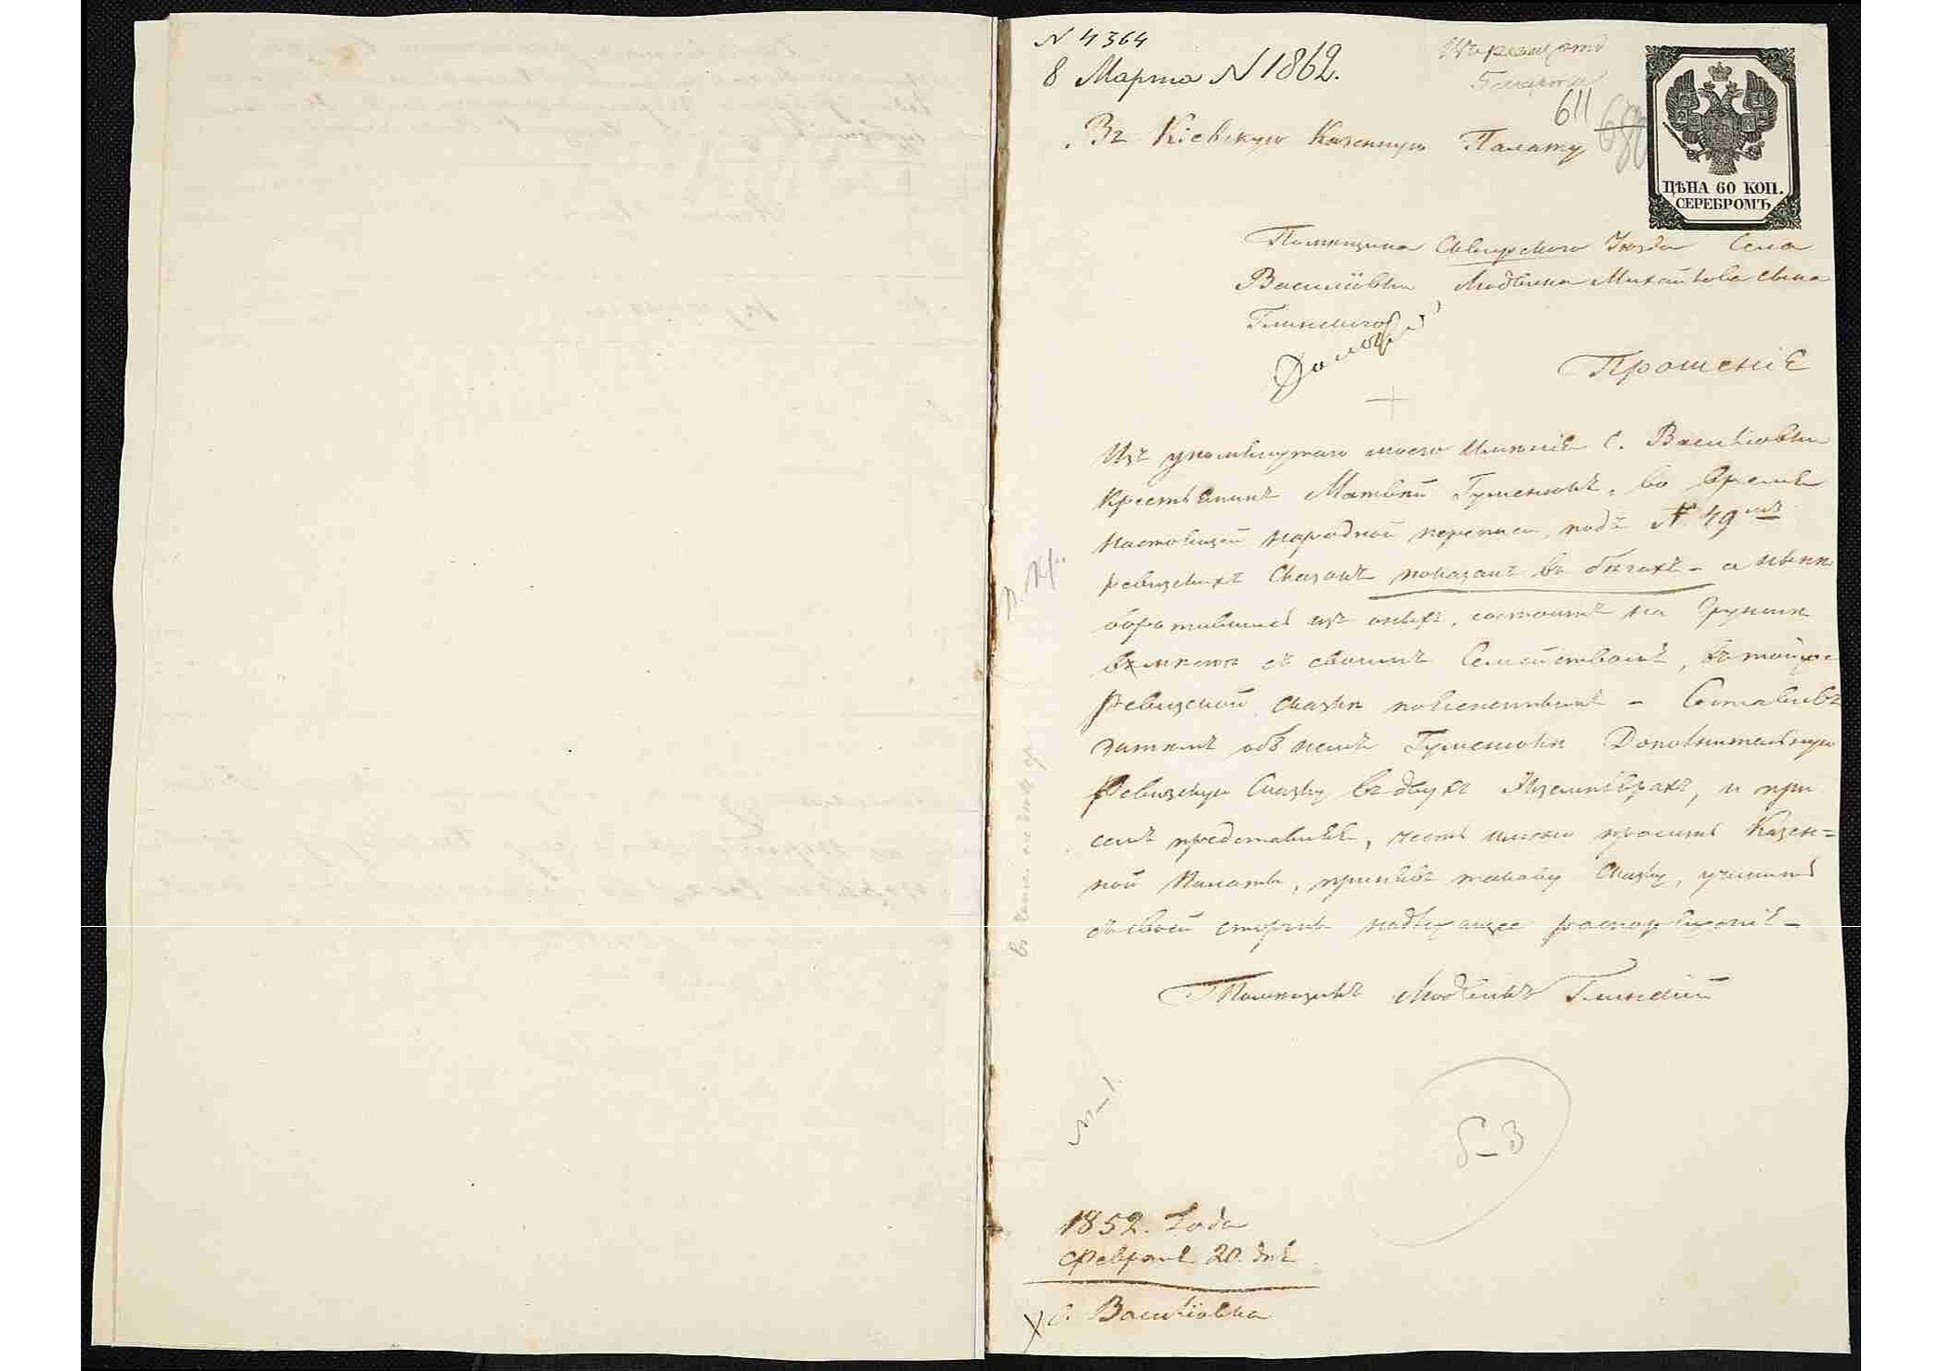 N 4364
8 Марта N 1862.
611
Въ Кіевскую Казенную Палату
ЦѢНА 60 КОП.
СЕРЕБРОМЪ
Помѣщика Сквирскаго Уѣзда Села
Василіовки Людвика Михайлова сына
Глинскаго
Прошеніе
Изъ упомянутаго моего имѣнія С. Василіовки
Крестьянинъ Матвѣй Гуменюкъ, во время
настоящей народной переписи, подъ N 49мъ
ревизскихъ Сказокъ показанъ въ бѣгахъ – а нынѣ
воротившись изъ оныхъ, состоитъ на Грунтѣ
вмѣстѣ съ своимъ Семействомъ, въ той же
Ревизской сказки – Составивъ
затемъ объ немъ Гуменюкѣ Дополнительную
Ревизскую Сказку въ двухъ Экземплярахъ, и при
семъ представляя, честь имѣю просить Казен=
ной Палаты, принявъ таковую Сказку, учинить
съ своей стороны надлежащее распоряженіе –
Помѣщикъ Людвикъ Глинскій
1852. Года
Февраля 20. дня
С. Василіовка